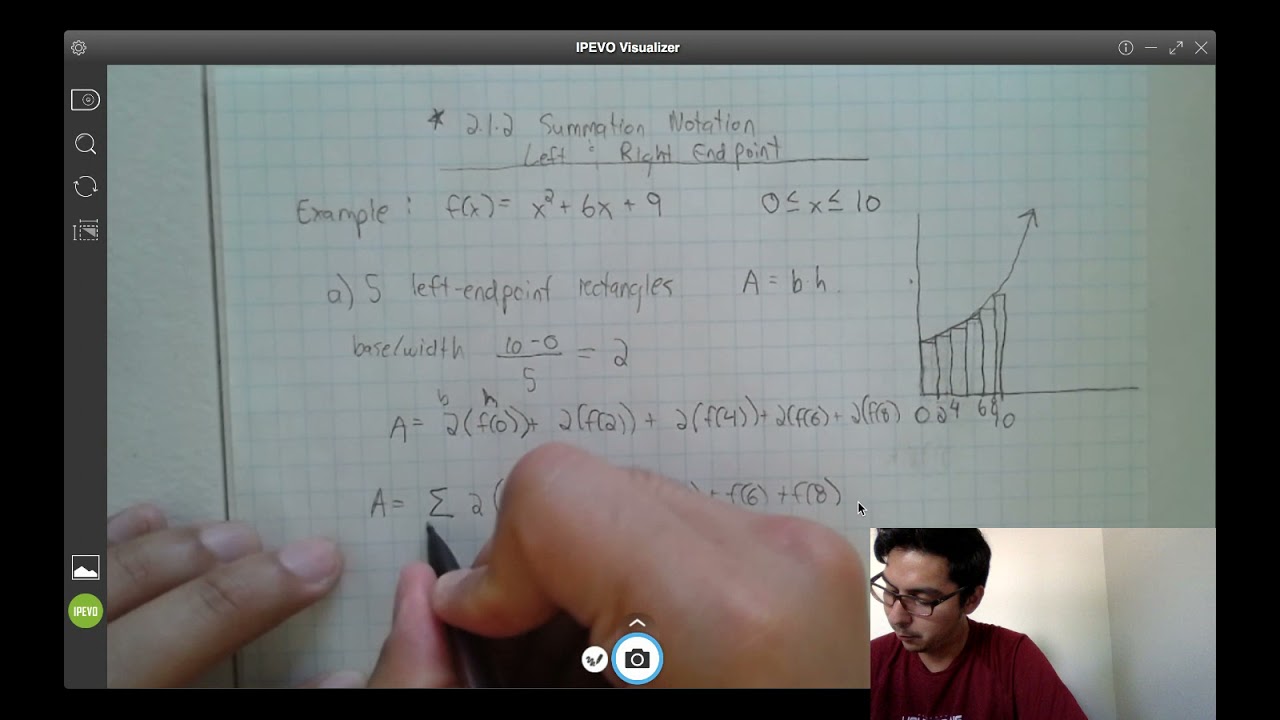 IPEVO Visualizer
* 2.1.2 Summation Notation
Left & Right Endpoint
Example: f(x) = x² + 6x + 9 0 ≤ x ≤ 10
a) 5 left-endpoint rectangles A = b·h
base/width (10-0)/5 = 2
b h
A = 2(f(0))+ 2(f(2)) + 2(f(4))+ 2(f(6) + 2(f(8)
0 2 4 6 8 10
A = Σ 2( + f(6) + f(8)
IPEVO